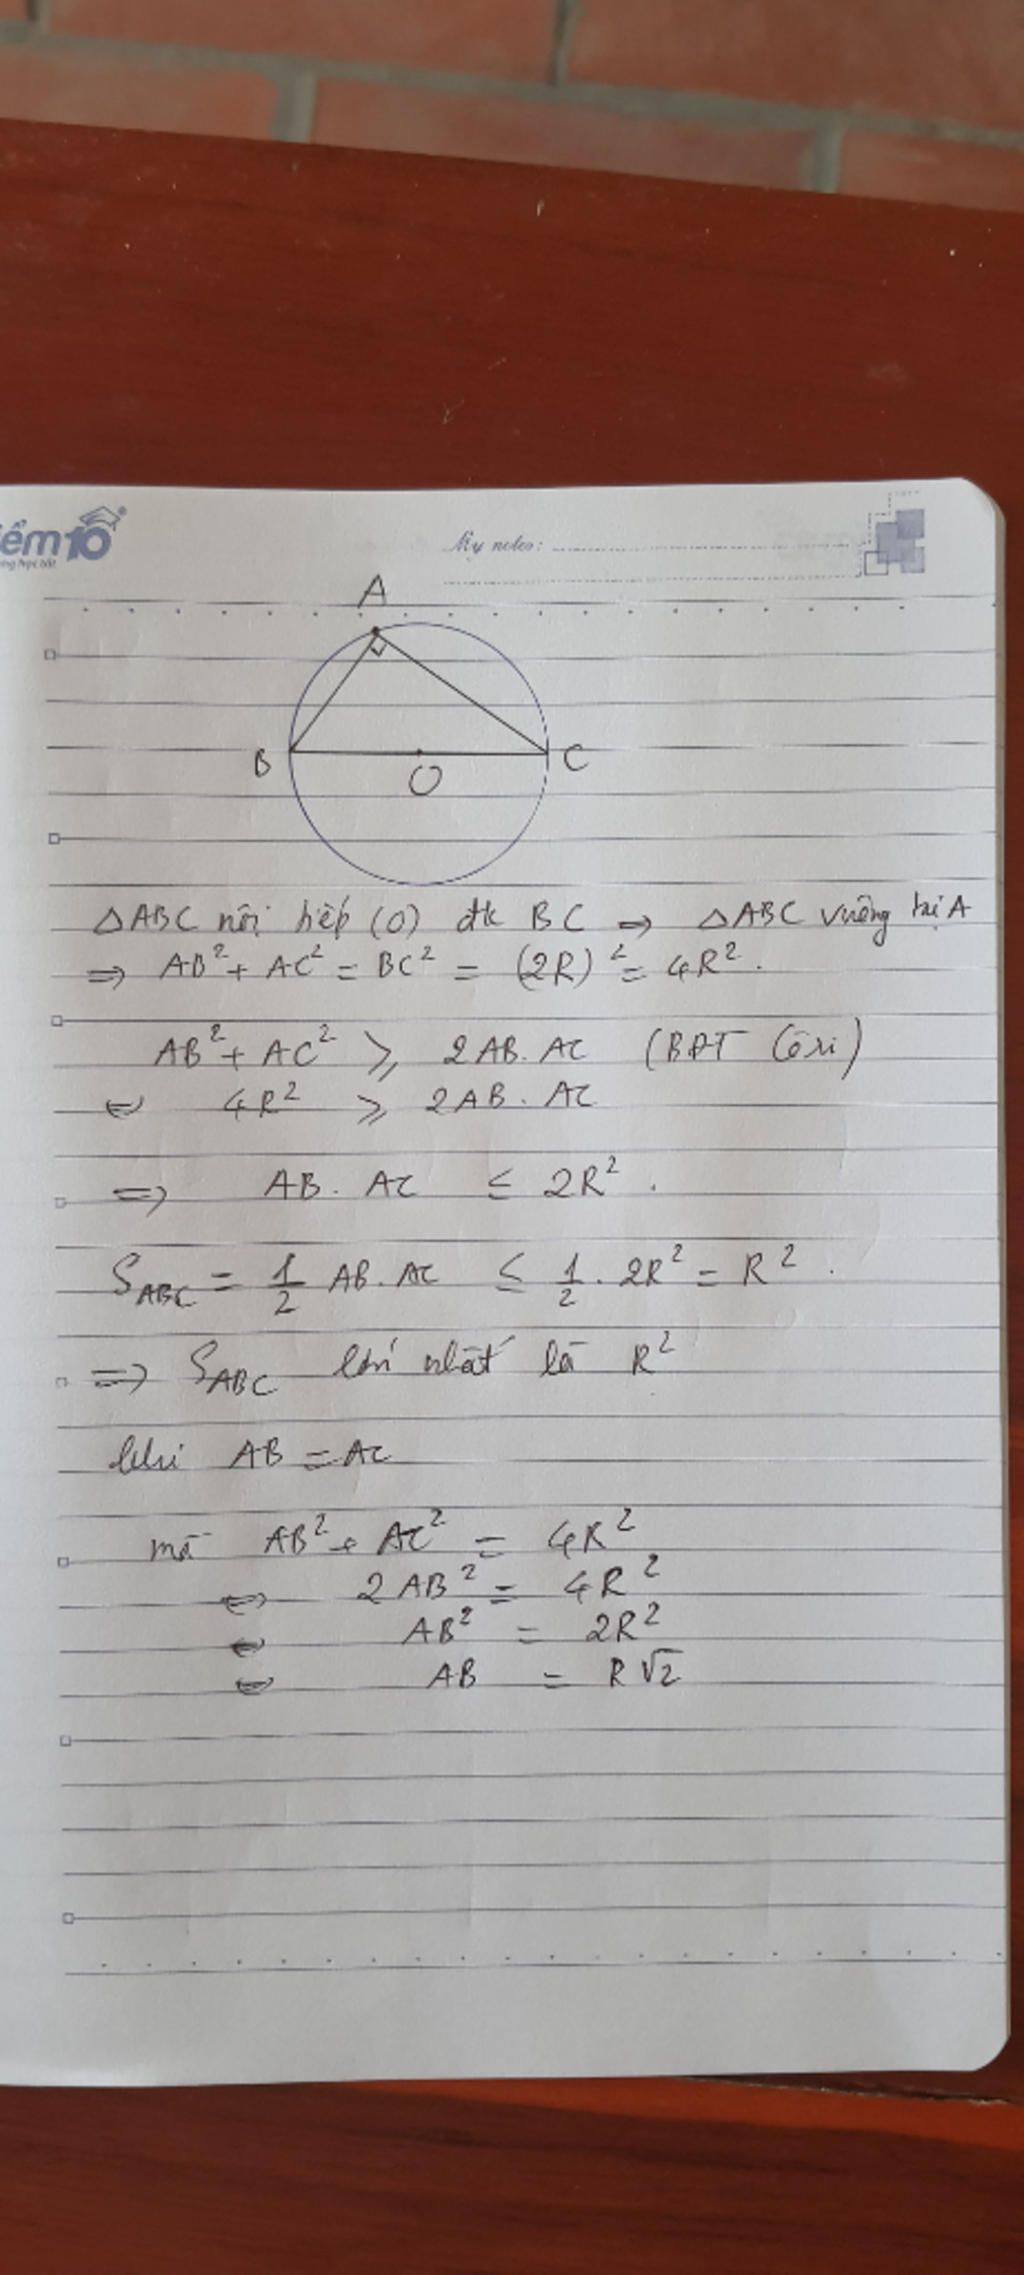 iểm10
My notes:
A
B
O
C
△ABC nội tiếp (O) đk BC ⇒ △ABC vuông tại A
⇒ AB² + AC² = BC² = (2R)² = 4R².
AB² + AC² ≥ 2AB.AC (BĐT Côsi)
⇔ 4R² ≥ 2AB.AC
⇒ AB.AC ≤ 2R².
S_ABC = 1/2 AB.AC ≤ 1/2 . 2R² = R².
⇒ S_ABC lớn nhất là R²
khi AB = AC
mà AB² + AC² = 4R²
⇔ 2AB² = 4R²
⇔ AB² = 2R²
⇔ AB = R√2